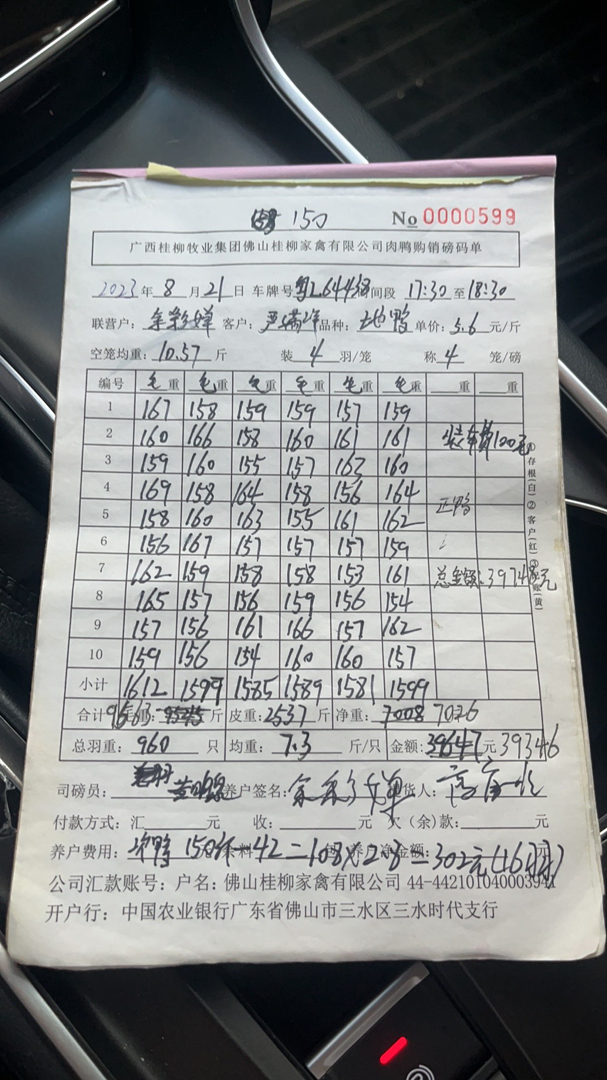 150
No 0000599
广西桂柳牧业集团佛山桂柳家禽有限公司肉鸭购销磅码单
2023年 8 月 21 日 车牌号 间段 17:30 至 18:30
联营户: 客户: 品种: 鸭 单价: 5.6 元/斤
空笼均重: 10.57 斤 装 4 羽/笼 称 4 笼/磅
编号 毛重 毛重 毛重 毛重 毛重 毛重 重 重
1 167 158 159 159 157 159
2 160 166 158 160 161 161 装车费120元
3 159 160 155 157 162 160
4 169 158 164 158 156 164
5 158 160 163 155 161 162 正鸭
6 156 167 157 157 157 159
7 162 159 158 158 153 161 总金额:39748元
8 165 157 156 159 156 154
9 157 156 161 166 157 162
10 159 156 154 160 160 157
小计 1612 1599 1585 1589 1581 1599
合计 9563 斤 皮重: 2537 斤 净重: 7008 7026
总羽重: 960 只 均重: 7.3 斤/只 金额: 39647 元 39346
司磅员: 养户签名: 货人:
付款方式: 汇 元 收: 元 欠(余)款: 元
养户费用: 次鸭 150斤-42=108×2.8=302元(16只) 净金额: 元
公司汇款账号: 户名: 佛山桂柳家禽有限公司 44-442101040003941
开户行: 中国农业银行广东省佛山市三水区三水时代支行
①存根(白)②客户(红)③ (黄)